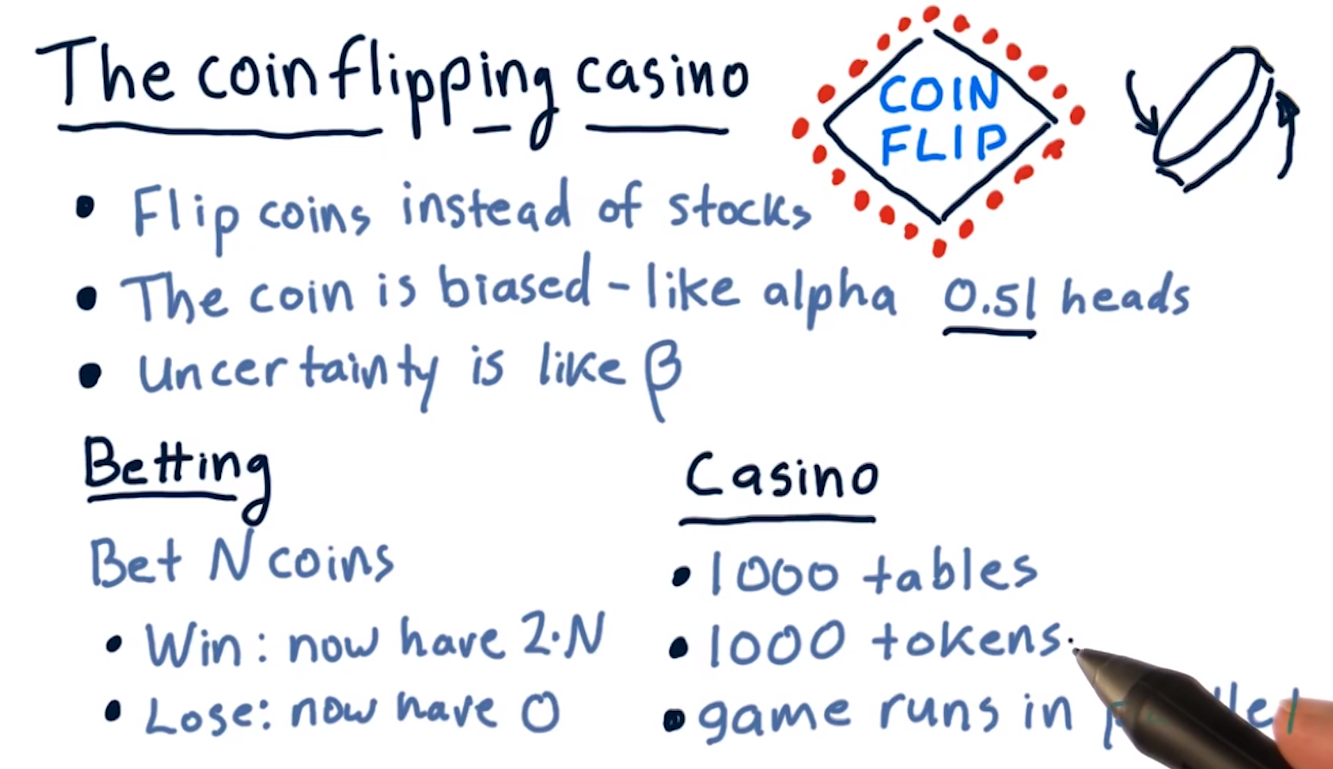 The coin flipping casino
COIN
FLIP
• Flip coins instead of stocks
• The coin is biased - like alpha 0.51 heads
• Uncertainty is like β
Betting
Bet N coins
• Win: now have 2·N
• Lose: now have 0
Casino
• 1000 tables
• 1000 tokens
• game runs in